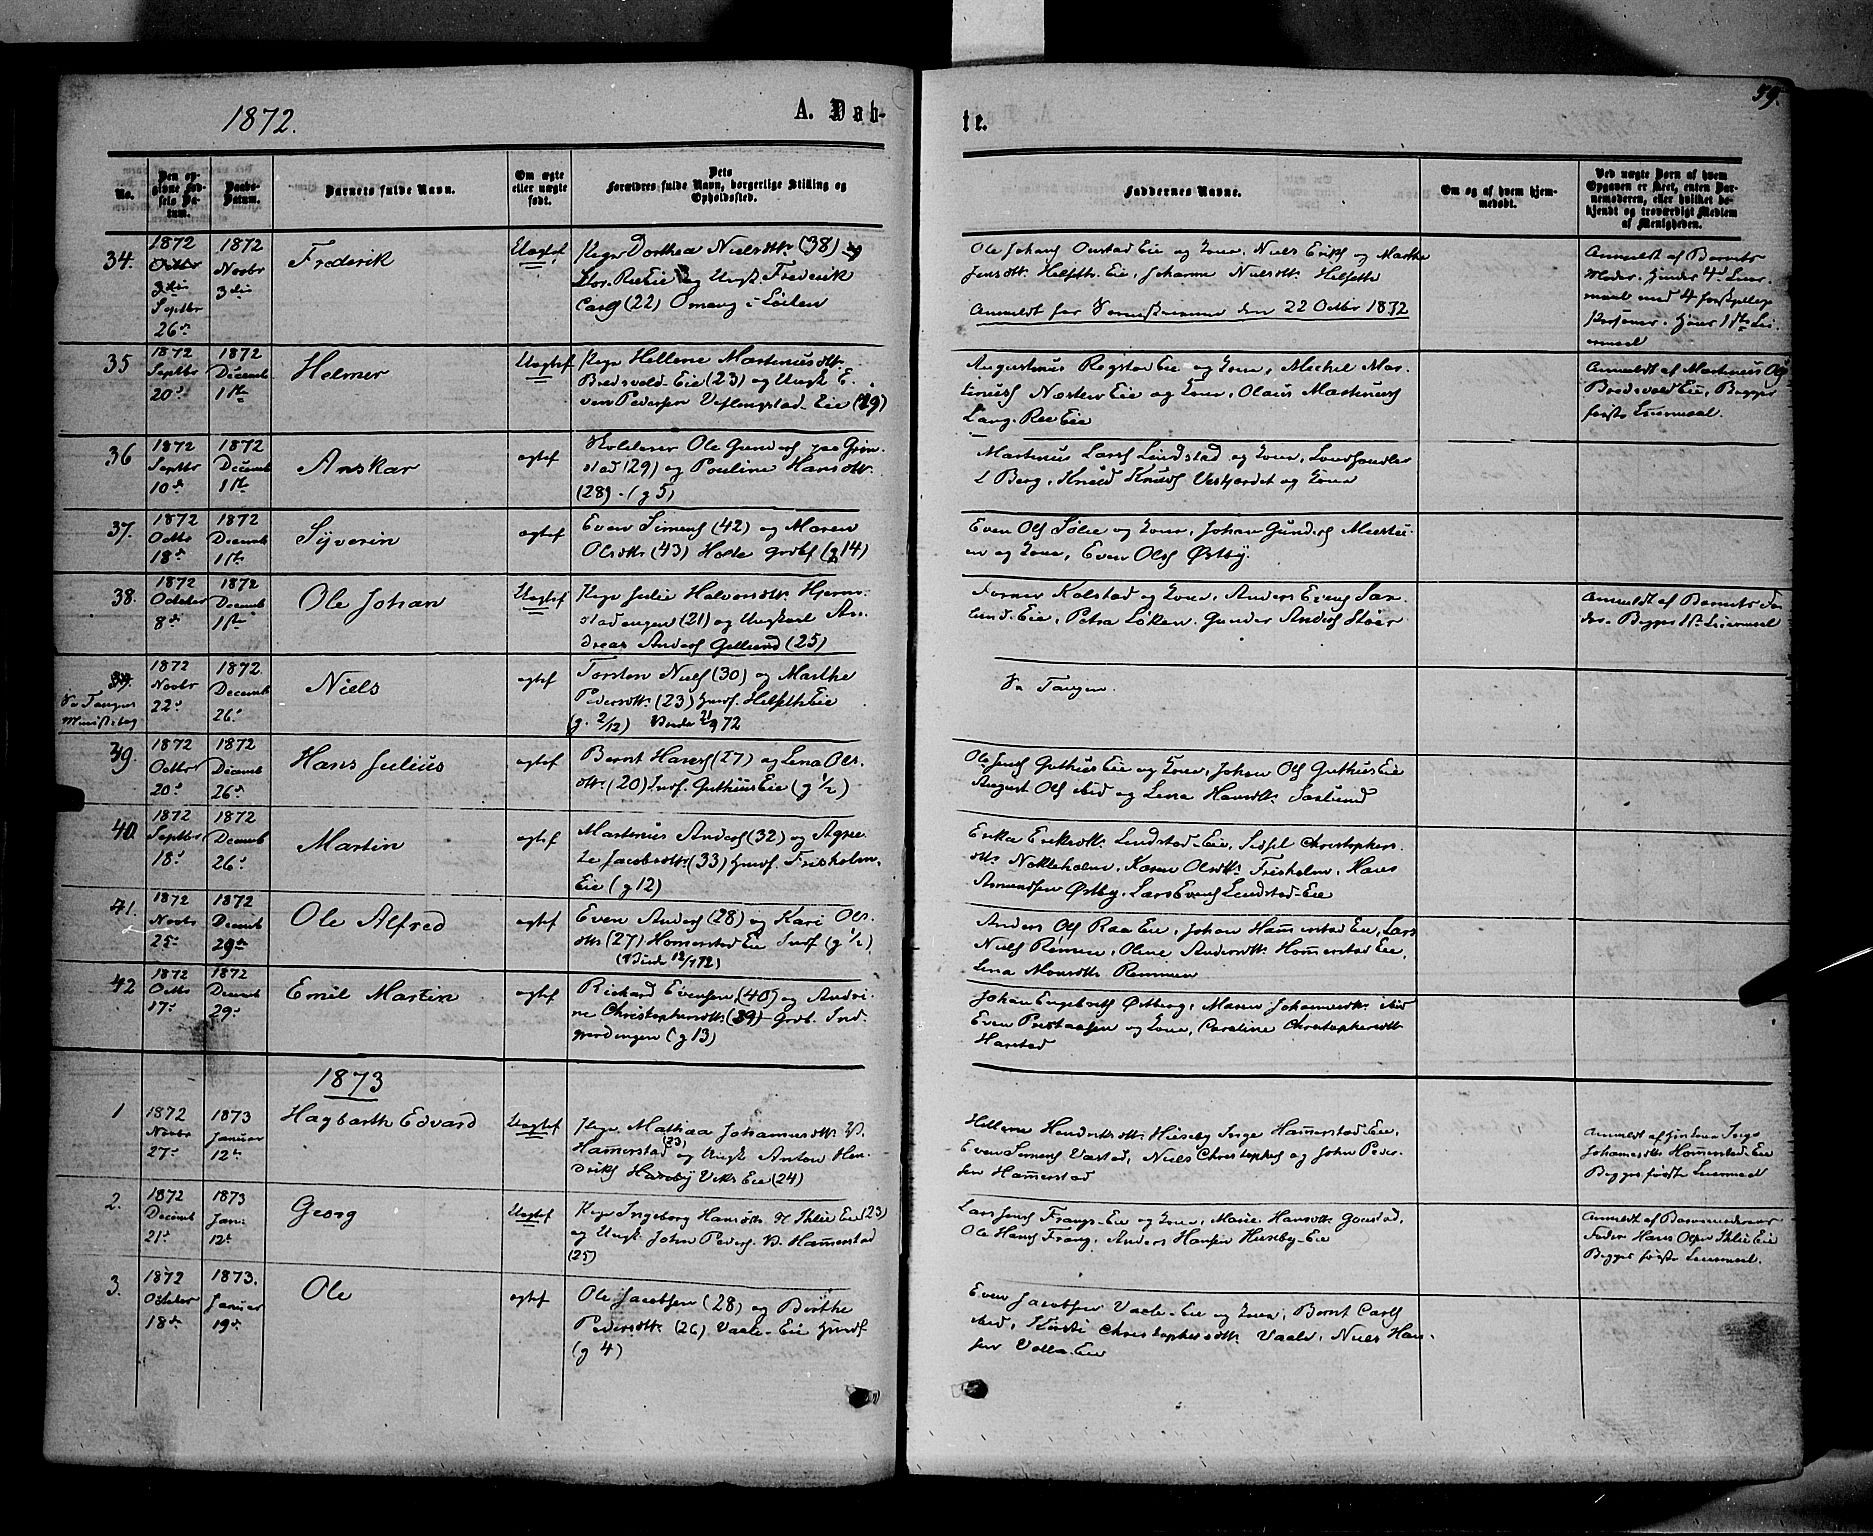 59.
1872.
A. Døb-
te.
No.
Den op-
givne Fød-
sels Da-
tum.
Daabs-
Datum.
Barnets fulde Navn.
Om ægte
eller uægte
født.
Dets
Forældres fulde Navn, borgerlige Stilling og
Opholdssted.
Faddernes Navne.
Om og af hvem hjem-
medøbt.
Ved uægte Børn af hvem
Opgaven er skeet, enten Bar-
nemoderen, eller hvilket be-
kjendt og troværdigt Medlem
af Menigheden.
34.
1872
Octbr
3die
Septbr
26de
1872
Novbr
3die
Frederik
Uægtef
Pige Dorthea Nielsdtr (38)
Stor Ree Eie og Ungk. Frederik
Carls (22) Omang i Løiten
Ole Johans Onstad Eie og Kone, Niels Eriks og Marthe
Jensdtr. Helseth. Eie, Johanne Nielsdtr. Helseth
Anmeldt for den 22 Octbr 1872
Anmeldt af Barnets
Moder. Hendes 4de Leier-
maal med 4 forskjellige
Personer. Hans 1ste Lei-
ermaal
35
1872
Septbr
20de
1872
Decemb
1ste
Helmer
Uægtef
Pige Hellene Martinusdtr.
Bredsvold-Eie (23) og Ungk E-
ven Pedersen Veflengstad-Eie (29)
Augustinus Rogstad Eie og Kone, Mickel Mar-
tinus Næsten Eie og Kone, Olaus Martinus
Lang-Ree Eie
Anmeldt af Martinus Ols
Bredsvold Eie, Begges
første Leiermaal.
36
1872
Septbr
10de
1872
Decemb
1ste
Anskar
ægtef
Skolelærer Ole Gunders paa Grim-
stad (29) og Pauline Hansdtr.
(28) - (g 5)
Martinus Lars Lindstad og Kone, Landhandler
L Berg, Knud Knuds Vestjordet og Kone
37.
1872
Octbr
18de
1872
Decemb
1ste
Syverin
ægtef
Even Simens (42) og Maren
Olsdtr (43) Hoele Grdbr (g 14)
Even Ols Sølie og Kone, Johan Gunders
og Kone, Even Ols Østby.
38.
1872
October
8de
1872
Decemb
1ste
Ole Johan
Uægtef
Pige Julie Halvorsdtr. Hjerm-
stadengen (21) og Ungkarl An-
dreas Anders Gillund (25)
Kolstad og Kone, Anders Evens Sør-
lund-Eie, Petra Løken, Gunder Anders Støer
Anmeldt af Barnets Fa-
der. Begges 1ste Leiermaal
39.
Se Tangens
Minist.bog
1872
Novbr
22de
1872
Decemb
26de
Niels
ægtef
Torsten Niels (30) og Marthe
Pedersdtr. (23) Husf. Helseth Eie
(g. 2/12)
Se Tangen.
39.
1872
Octbr
20de
1872
Decemb
26de
Hans Julius
ægtef
Bernt Hans (27) og Lena Ols-
dtr. (20) Indf. Guthus Eie (g 1/2)
Ole Jens Guthus Eie og Kone, Johan Ols Guthus Eie
August Ols ibid og Lena Hansdtr. Sørlund
40.
1872
Septbr
18de
1872
Decemb
26de
Martin
ægtef
Martinus Anders (32) og Agne-
te Jacobsdtr (33) Husf. Frisholm-
Eie (g 12)
Erika Eriksdtr. Lindstad-Eie, Sidsel Christophers-
dtr. Nokleholm, Karen Olsdtr. Frisholm, Hans
Amundsen Østby, Lars Evens Lindstad-Eie
41.
1872
Novbr
25de
1872
Decemb
29de
Ole Alfred
ægtef
Even Anders (28) og Kari Ols-
dtr (27) Hommerstad Eie Indf (g 1/2)
(Viede 12/1 72)
Anders Ols Raa Eie, Johan Hammerstad Eie, Lars
Niels Rømen, Oline Andersdtr Hommerstad Eie,
Lina Monsdtr Rommen
42
1872
Octbr
17de
1872
Decemb
29de
Emil Martin
ægtef
Rickard Evensen (40) og Andri-
ne Christophersdtr. (39) Grdb. Ind-
(g 13)
Johan Engebrets Østberg, Maren Johannesdtr ibid
Even og Kone, Caroline Christophersdtr
Harstad
1873
1
1872
Novbr
27de
1873
Januar
12te
Hagbarth Edvard
Uægtef
Pige Mathea Johannesdtr. V.
Hamerstad (23) og Ungk Anton Hen-
driks Huseby Viks Eie (24)
Hellene Hendriksdtr. Huseby, Inge Hamerstad-Eie,
Even Simens Væstad, Niels Christophers og John Peder-
sen Hamerstad
Johannesdtr. Homerstad-Eie
Begges første Leiermaal
2.
1872
Decemb
21de
1873
Jan:
12te
Georg
Uægtef
Pige Ingeborg Hansdtr. N Ihlie Eie (23)
og Ungk. John Peders V. Hamerstad
(25)
Lars Jens Frangs-Eie og Kone, Marie Hansdtr Gaustad,
Ole Hans Frang, Anders Hansen Huseby-Eie
Anmeldt af Barnemoderens
Fader Hans Olsen Ihlie Eie
Begges første Leiermaal.
3.
1872
October
18de
1873.
Januar
19de
Ole
ægtef
Ole Jacobsen (28) og Birthe
Pedersdtr. (26) Vaale-Eie Husf
(g 4)
Even Jacobsen Vaale-Eie og Kone, Bernt Carls
ibid, Kirsti Christophersdtr. Vaale, Niels Han-
sen Volla-Eie